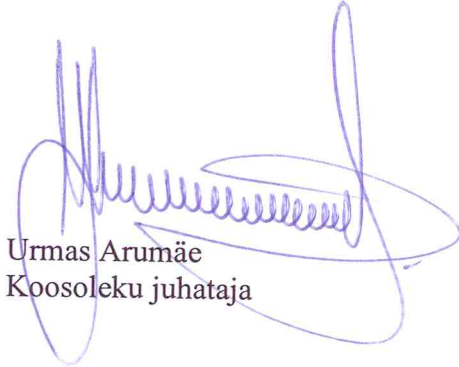 Urmas Arumäe
Koosoleku juhataja